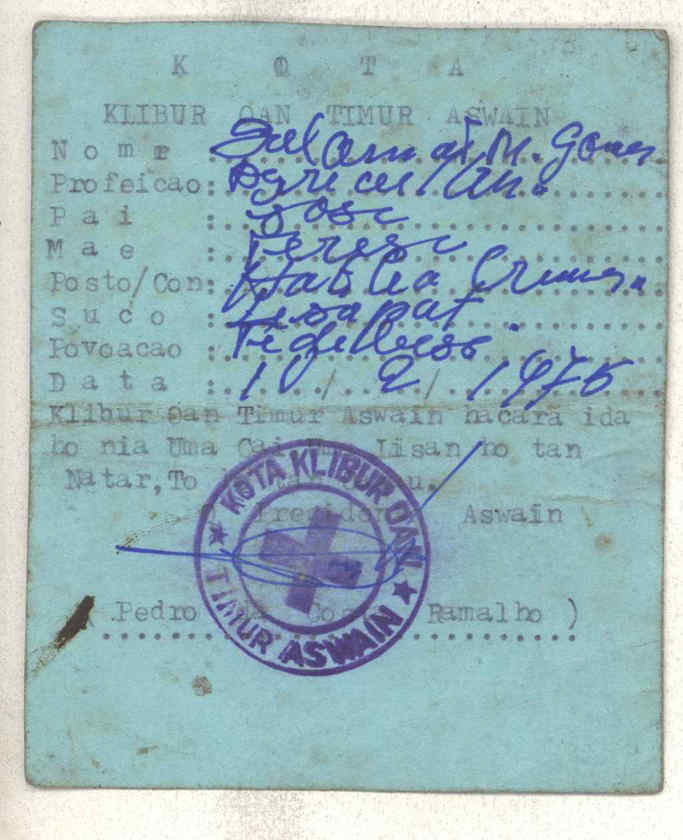 K O T A
KLIBUR OAN TIMUR ASWAIN
Nomr : Salamat M. Gomes
Profeicao: Agricultor
Pai : Jose
Mae : Teresa
Posto/Con: Hatolia Ermera
Suco : Lisapat
Povoacao :
Data : 10 / 2 / 1975
Klibur Oan Timur Aswain hacara ida
ho nia Uma Cai Lisan ho tan
Natar, To u.
Presiden Aswain
(Pedro da Costa Ramalho )
KOTA KLIBUR OAN
TIMUR ASWAIN